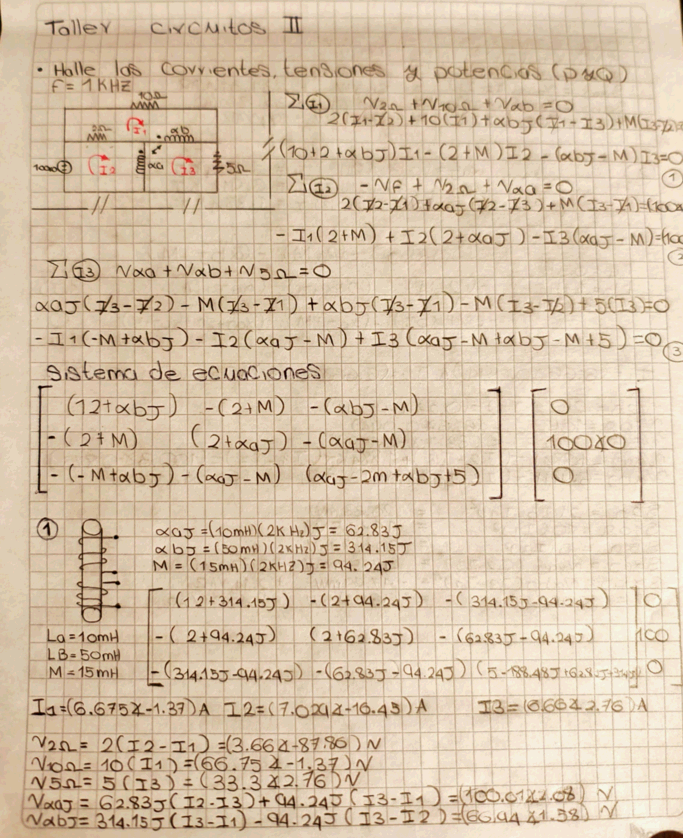 Taller circuitos II
• Halle las corrientes, tensiones y potencias (P y Q)
f = 1 KHZ
10Ω
I1
αb
2Ω
100∡0
I2
αa
I3
5Ω
Σ I1 V2Ω + V10Ω + Vαb = 0
2(I1-I2) + 10(I1) + αbJ(I1-I3)+M(I3-I2)=
(10+2+αbJ)I1-(2+M)I2-(αbJ-M)I3=0
①
Σ I2 -Vf + V2Ω + Vαa = 0
2(I2-I1)+αaJ(I2-I3)+M(I3-I1)=(100∡
-I1(2+M) + I2(2+αaJ) - I3(αaJ-M)=(100
②
Σ I3 Vαa + Vαb + V5Ω = 0
αaJ(I3-I2) - M(I3-I1) + αbJ(I3-I1) - M(I3-I2)+5(I3)=0
-I1(-M+αbJ) - I2(αaJ-M) + I3(αaJ-M+αbJ-M+5)=0
③
Sistema de ecuaciones
(12+αbJ) -(2+M) -(αbJ-M) 0
-(2+M) (2+αaJ) -(αaJ-M) 100∡0
-(-M+αbJ) -(αaJ-M) (αaJ-2m+αbJ+5) 0
①
αaJ = (10mH)(2KHz)J = 62.83J
αbJ = (50mH)(2KHz)J = 314.15J
M = (15mH)(2KHZ)J = 94.24J
La = 10mH
LB = 50mH
M = 15mH
(12+314.15J) -(2+94.24J) -(314.15J-94.24J) 0
-(2+94.24J) (2+62.83J) -(62.83J-94.24J) 100
-(314.15J-94.24J) -(62.83J-94.24J) (5-188.48J+ 0
I1=(6.675∡-1.37)A I2=(7.029∡-16.45)A I3=(6.66∡2.76)A
V2Ω = 2(I2-I1) =(3.66∡-87.86)V
V10Ω = 10(I1) =(66.75∡-1.37)V
V5Ω = 5(I3) = (33.3∡2.76)V
VαaJ = 62.83J(I2-I3)+94.24J(I3-I1)=(100.01∡2.08) V
VαbJ = 314.15J(I3-I1) - 94.24J(I3-I2)=(66.94∡1.58) V